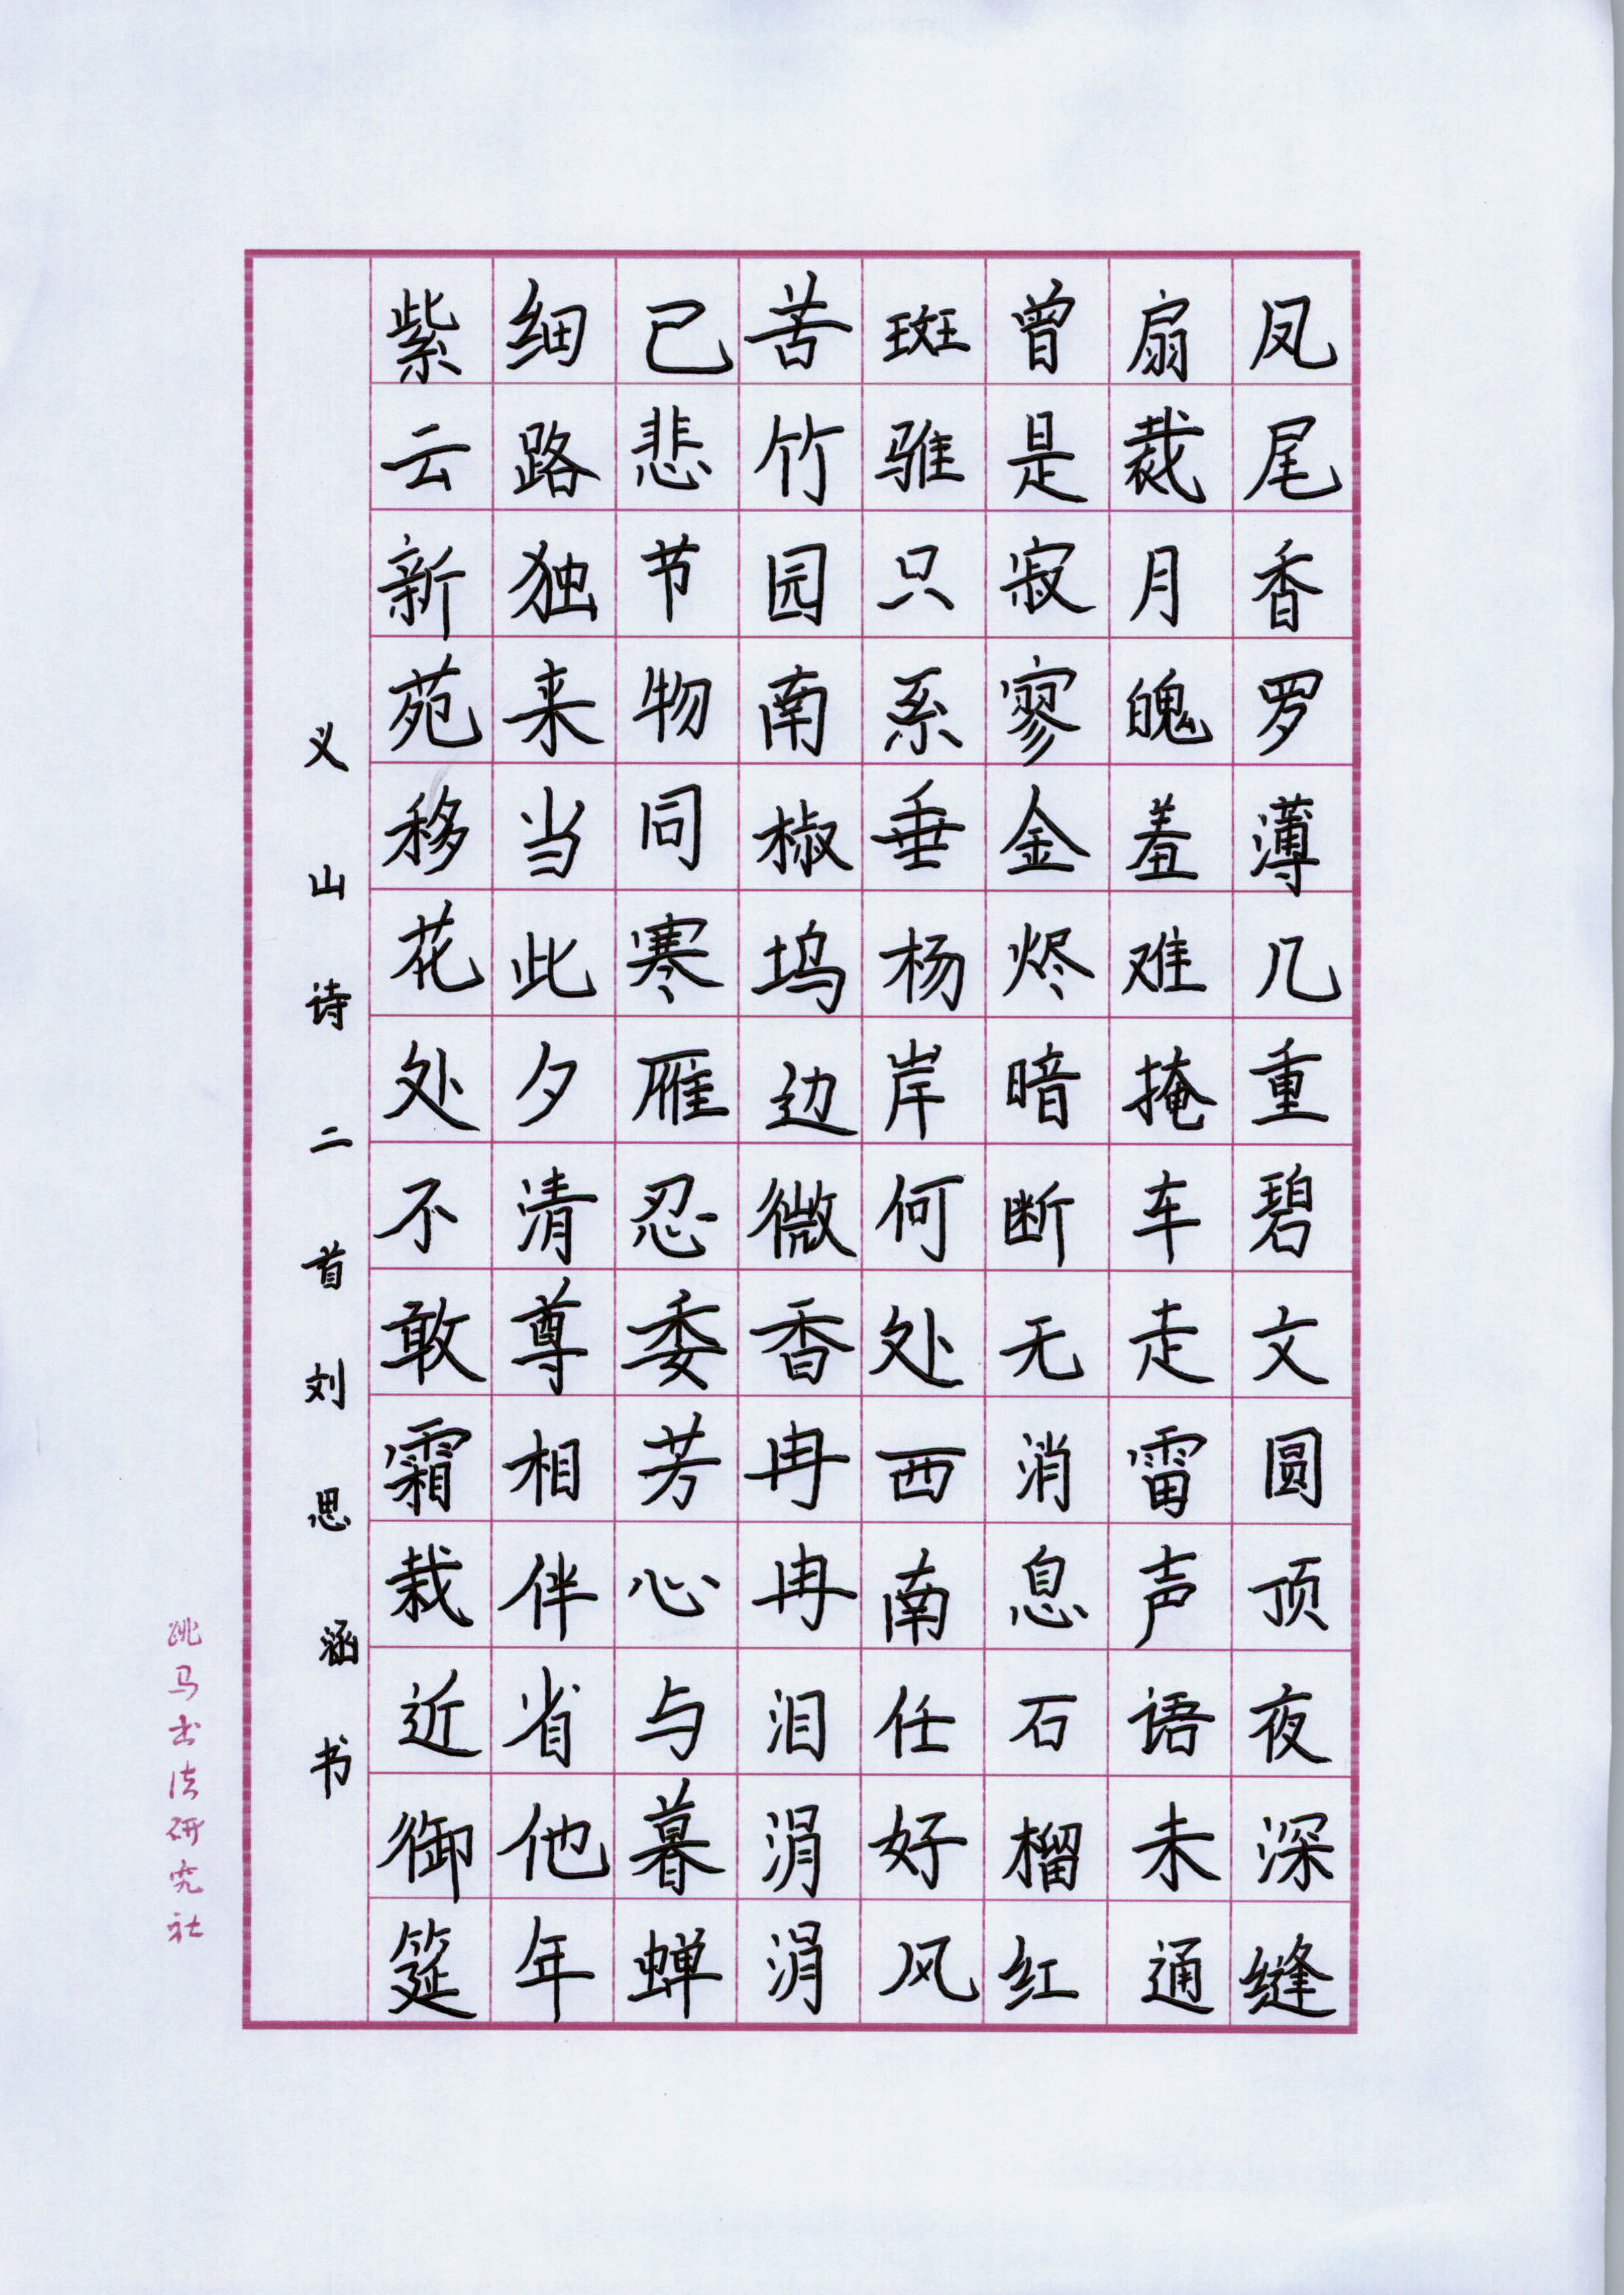 凤尾香罗薄几重碧文圆顶夜深缝
扇裁月魄羞难掩车走雷声语未通
曾是寂寥金烬暗断无消息石榴红
斑骓只系垂杨岸何处西南任好风
苦竹园南椒坞边微香冉冉泪涓涓
已悲节物同寒雁忍委芳心与暮蝉
细路独来当此夕清尊相伴省他年
紫云新苑移花处不敢霜栽近御筵
义山诗二首刘思涵书
跳马书法研究社